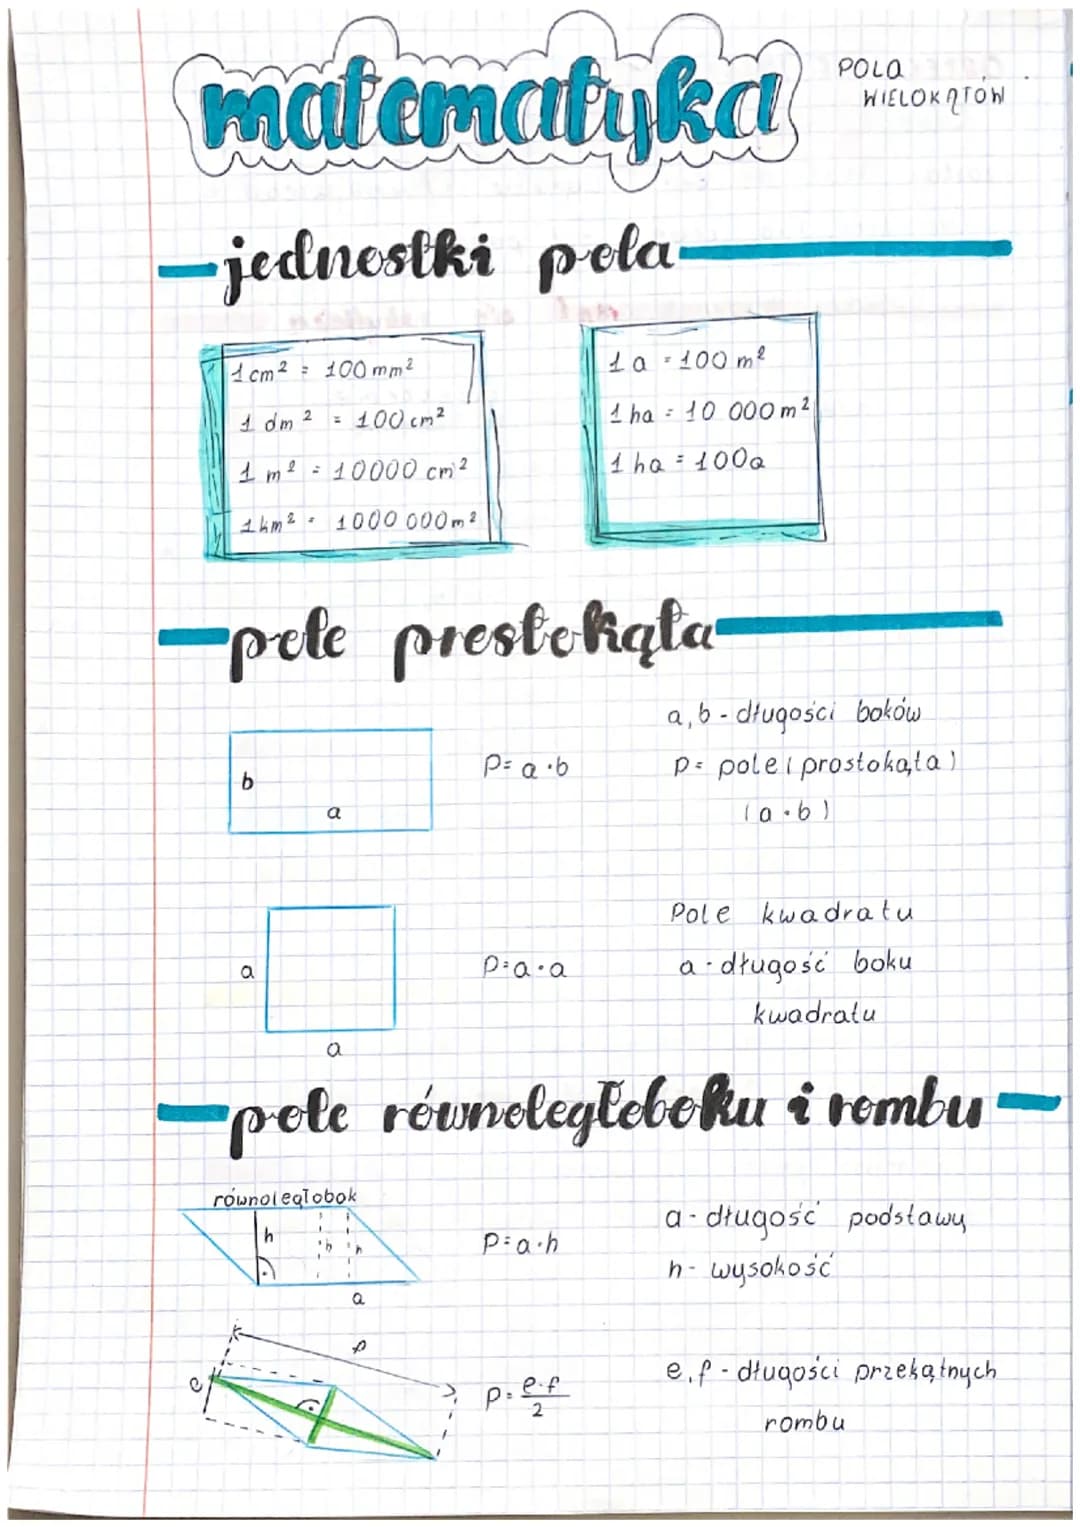 matematyka
POLA
WIELOKĄTÓW
jednostki pola
1 cm² = 100 mm²
1 dm² = 100 cm²
1 m² = 10000 cm²
1 km² = 1000 000 m²
1 a = 100 m²
1 ha = 10 000 m²
1 ha = 100a
pole prostokąta
a, b - długości boków
b
P = a · b
P = pole (prostokąta)
a
(a · b)
Pole kwadratu
a
P = a · a
a - długość boku
kwadratu
a
pole równoległoboku i rombu
równoległobok
h
h
h
P = a · h
a - długość podstawy
h - wysokość
a
f
e
P = e·f
2
e, f - długości przekątnych
rombu